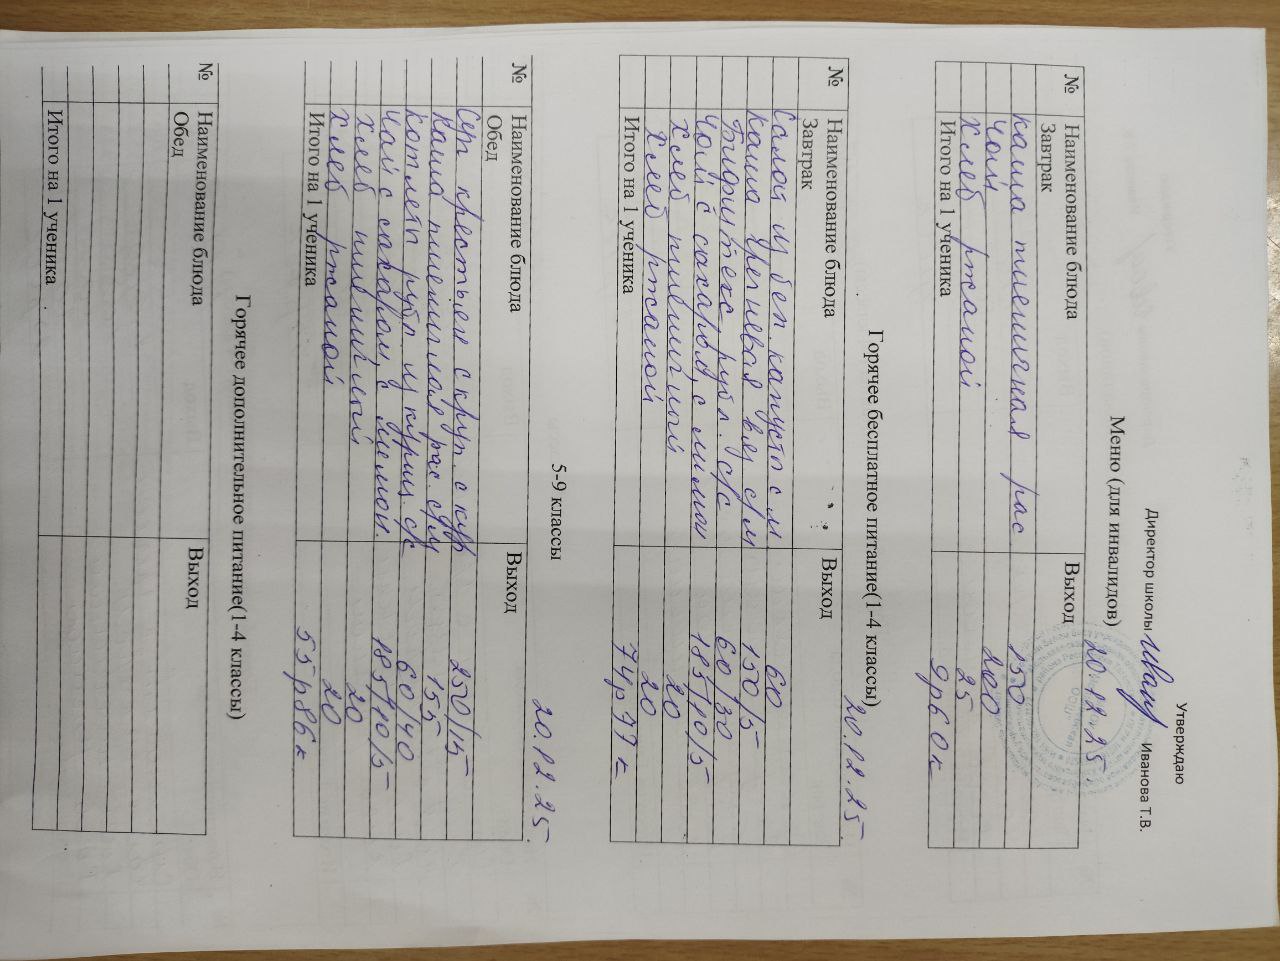 Утверждаю
Директор школы Иванова Т.В.
20.12.25.
Меню (для инвалидов)
№ Наименование блюда Выход
Завтрак
каша пшеничная рас 150
чай 200
хлеб ржаной 25
Итого на 1 ученика 9р60к
Горячее бесплатное питание(1-4 классы)
20.12.25.
№ Наименование блюда Выход
Завтрак
Салат из бел. капусты с м 60
каша гречневая вяз с/м 150/5
Бифштекс рубл. с/с 60/30
чай с сахаром, с лимон 185/10/5
хлеб пшеничный 20
хлеб ржаной 20
Итого на 1 ученика 74р77к
5-9 классы
20.12.25.
№ Наименование блюда Выход
Обед
Суп крестьян с круп. с кур 250/15
каша пшеничная рас с/м 155
котлеты рубл из куриц. с/с 60/40
чай с сахаром, с лимон. 185/10/5
хлеб пшеничный 20
хлеб ржаной 20
Итого на 1 ученика 55р86к
Горячее дополнительное питание(1-4 классы)
№ Наименование блюда Выход
Обед
Итого на 1 ученика